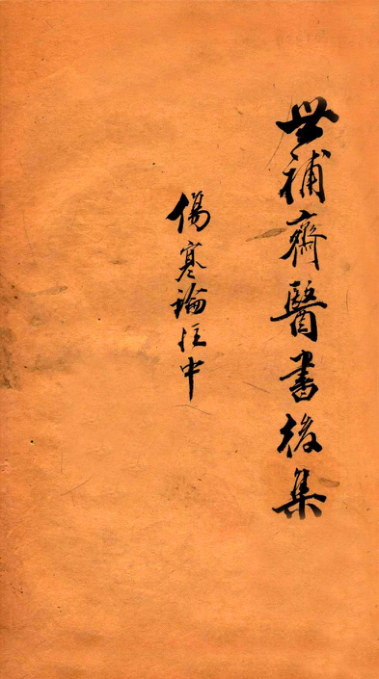 世補齋醫書後集
傷寒論注中